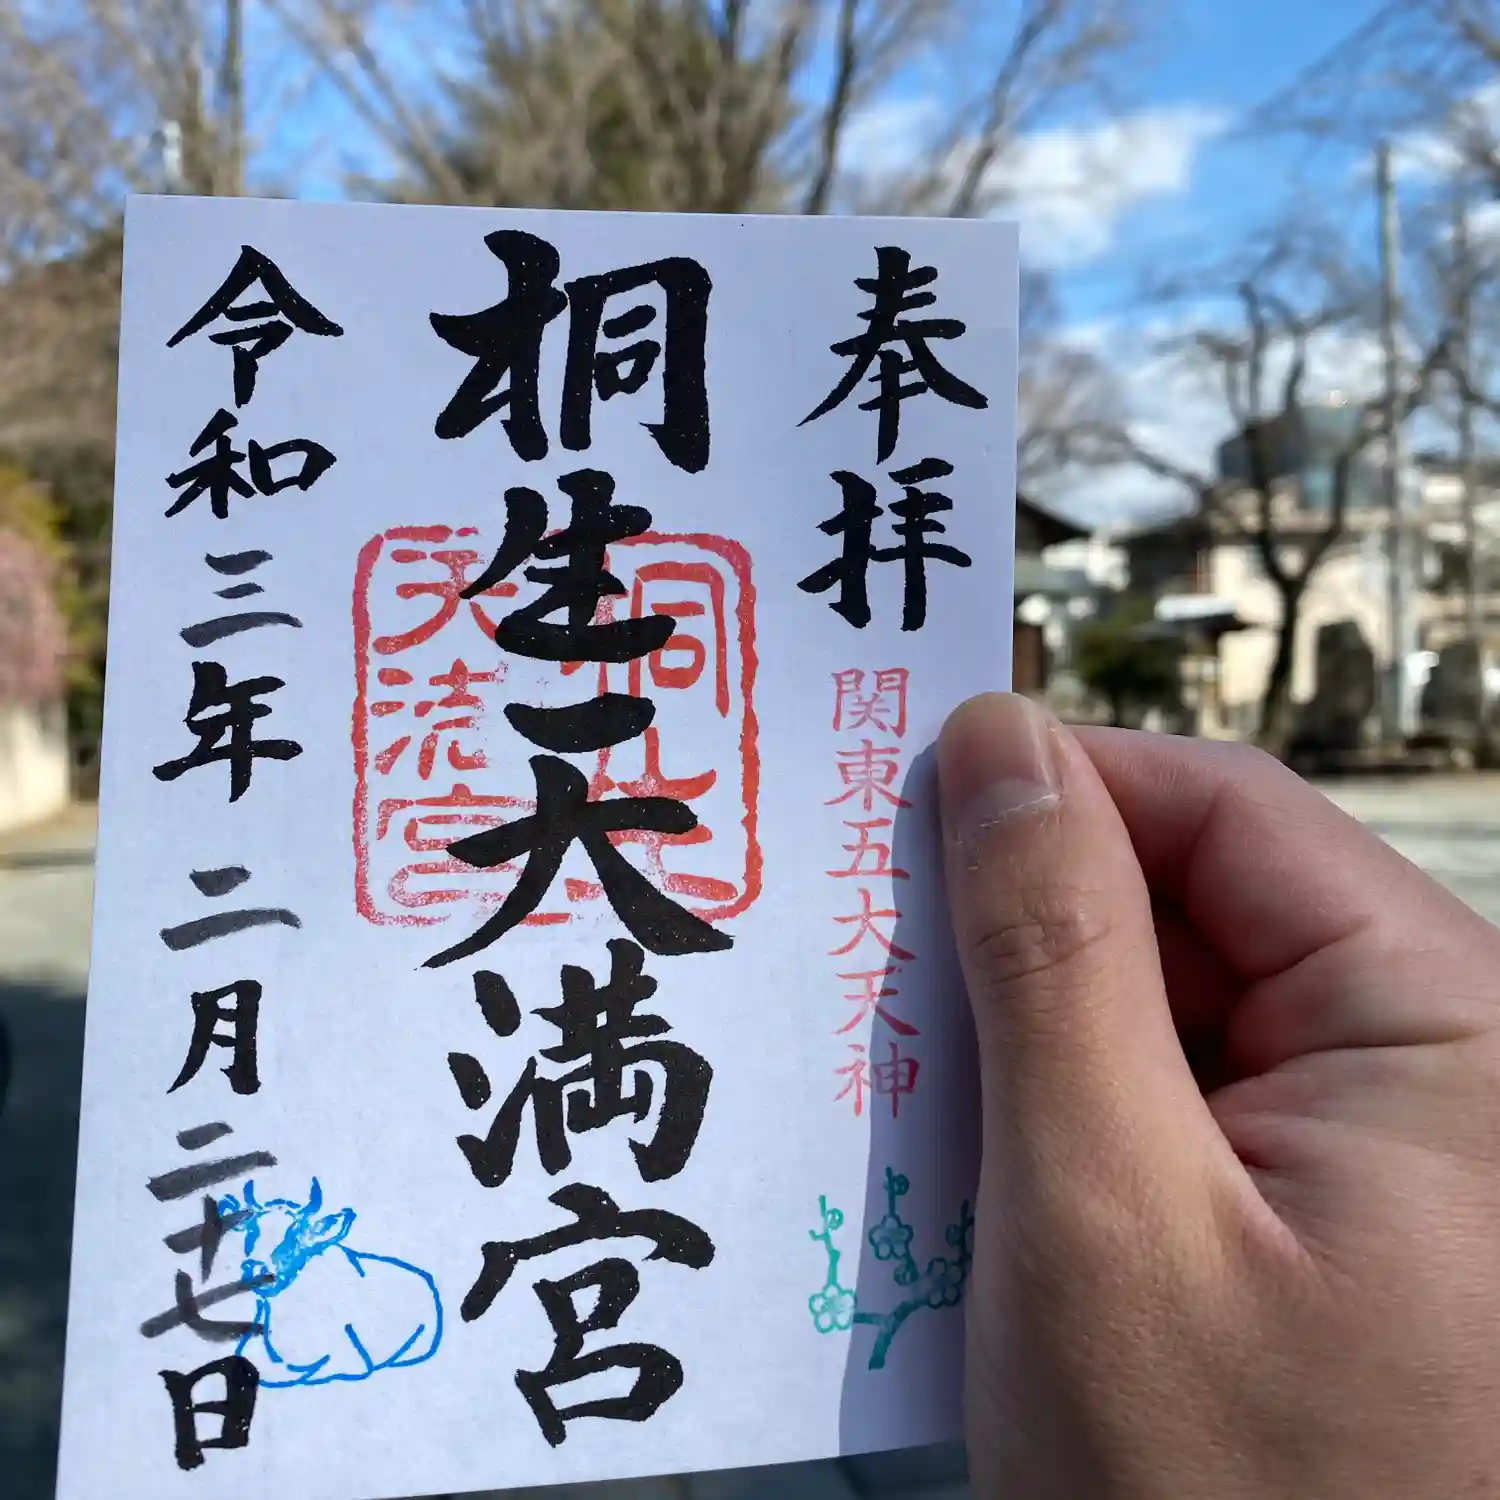 奉拝
関東五大天神
桐生天満宮
桐生
天満宮
令和三年 二月二十七日